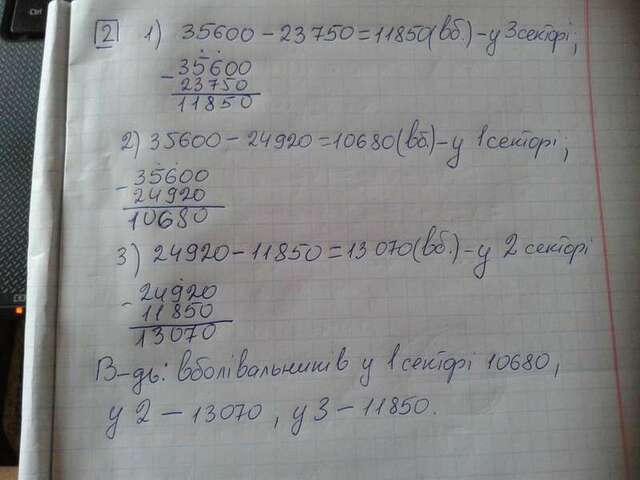 2 1) 35600 - 23750 = 11850 (вб.) - у 3 секторі;
- 35600
23750
11850
2) 35600 - 24920 = 10680 (вб.) - у 1 секторі;
- 35600
24920
10680
3) 24920 - 11850 = 13070 (вб.) - у 2 секторі
- 24920
11850
13070
В-дь: вболівальників у 1 секторі 10680,
у 2 - 13070, у 3 - 11850.